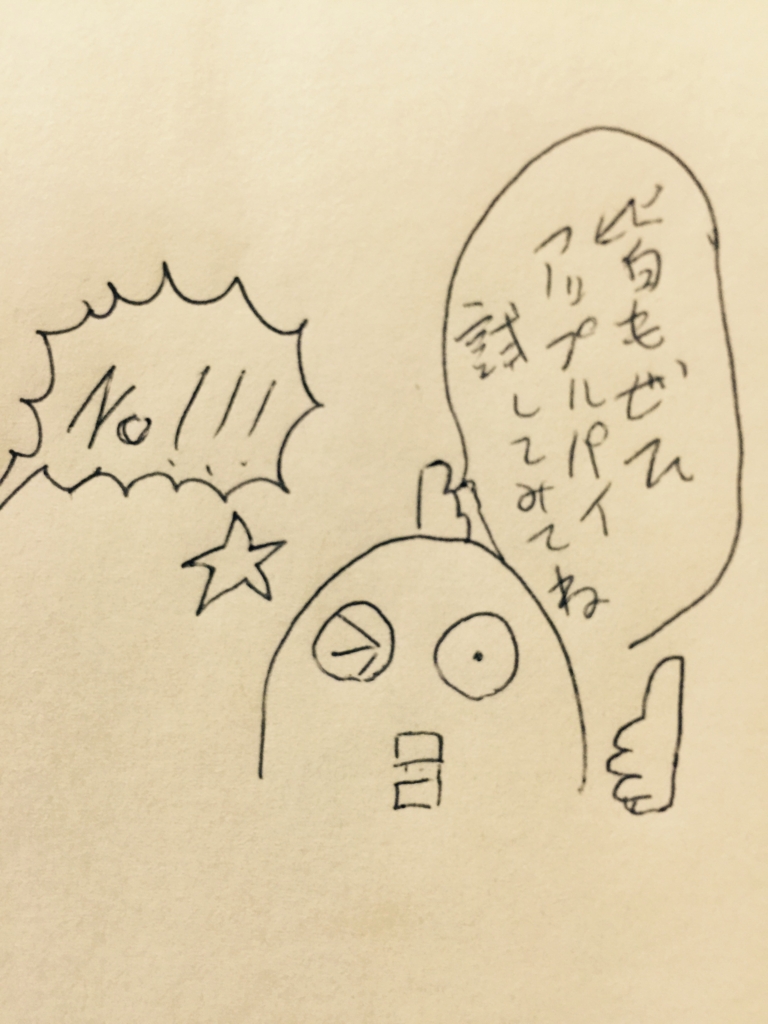 皆もぜひ
アップルパイ
試してみてね
No!!!